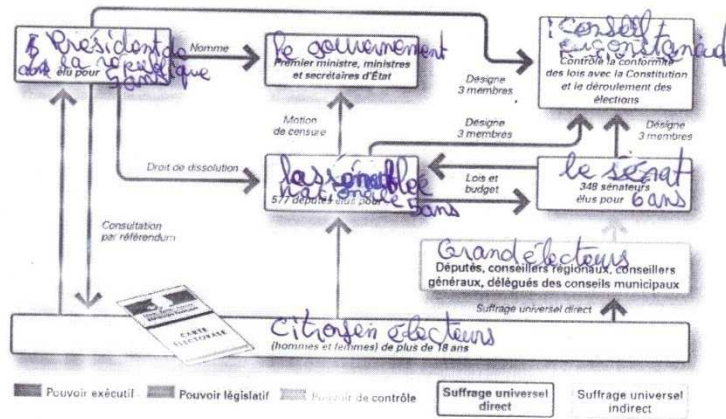 Président de
la république
élu pour 5 ans
Nomme
le gouvernement
Premier ministre, ministres
et secrétaires d'État
Conseil
Contrôle la conformité
des lois avec la Constitution
et le déroulement des
élections
Désigne
3 membres
Motion
de censure
Désigne
3 membres
Désigne
3 membres
Droit de dissolution
nationale
577 députés élus pour 5 ans
Lois et
budget
le sénat
348 sénateurs
élus pour 6 ans
Consultation
par référendum
Grand électeurs
Députés, conseillers régionaux, conseillers
généraux, délégués des conseils municipaux
Suffrage universel
direct
CARTE
ÉLECTORALE
Citroyen électeurs
(hommes et femmes) de plus de 18 ans
Pouvoir exécutif
Pouvoir législatif
Pouvoir de contrôle
Suffrage universel
direct
Suffrage universel
indirect